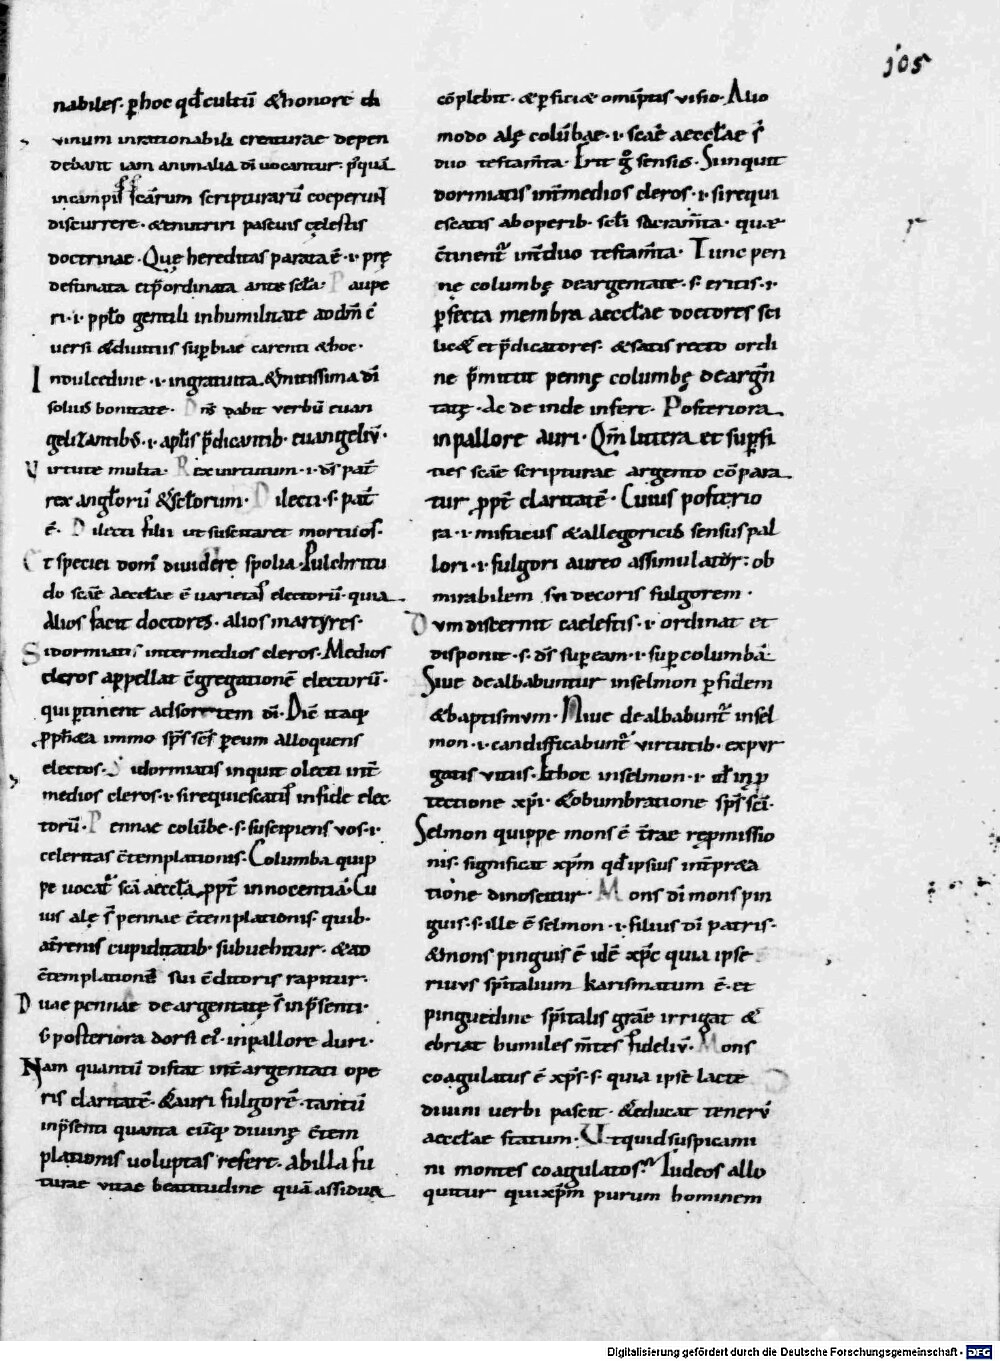 105
nabiles· p̱hoc qđ cultū &honore di
uinum inrationabili creaturae depen
debant iam animalia dī uocantur· p̱quā
incampis scārum scripturarū coeperunt
discurrere· &enutriri pascuis cęlestis
doctrinae· Quę hereditas parata ē· ·i· prę
destinata et p̄ordinata ante scła· Paupe
ri·i· pplo gentili inhumilitate ad dm̄ c̄
uersi &diuitiis sup̱biae carenti &hoc·
Indulcedine ·i· ingratuita &mitissima dī
solius bonitate· Dn̄s dabit verbū euan
gelizantibus·i· apłis p̄dicantib· euangeliū·
Uirtute multa· Rex uirtutum ·i· ds̄ pat̄
rex angłorū &scłorum· Dilecti·s· pat̄
ē· Dilecti filii ut suscitaret mortuos·
Et speciei dom' diuidere spolia· Pulchritu
do scāe aecclae ē uarietas electorū· quia
alios facit doctores· alios martyres·
Si dormiatis inter medios cleros· Medios
cleros appellat c̄gregationē electorū·
qui p̱tinent ad sortem dī· Diē itaq
p̱pheta immo sp̄s scs̄ p̱eum alloquens
electos· Si dormiatis inquit o lecti int̄
medios cleros·i· si requiescatis in fide elec
torū· Pennae colūbe·s· suscipiens vos·i·
celeritas c̄templationis· Columba quip
pe uocat̄ scā aeccła p̱pt̄ innocentiā· Cu
ius alę s̄ pennae c̄templationis· quib·
at̄renis cupiditatib· subuehitur· &ad
c̄templationē sui c̄ditoris rapitur·
Duae pennae deargentatę s̄ inp̄senti·
s· posteriora dorsi ei'· inpallore auri·
Nam quantū distat int̄ argentati ope
ris claritatē· &auri fulgorē· tantū
inp̄senti quanta cūq diuinę c̄tem
plationis uoluptas refert· ab illa fu
turae vitae beatitudine quā assidua
cōplebit· &p̱ficiet omīptis visio· Alio
modo alę colūbae·i· scāe aecclae s̄
duo testam̄ta· Erit g° sensus· Si inquit
dormiatis int̄medios cleros·i· si requi
escatis ab operib· scłi sacram̄ta· quae
c̄tinent̄ int̄ duo testam̄ta· Tunc pen
ne columbę deargentate·s· eritis·i·
p̱fecta membra aecclae doctores sci
licet et p̄dicatores· &satis recto ordi
ne p̄mittit pennę columbę deargn̄
tatę· Ac de inde infert· Posteriora
in pallore auri· Qm̄ littera et sup̱fi
ties scāe scripturae argento cōpara
tur p̱pt̄ claritatē· Cuius posterio
ra·i· misticus &allegoricus sensus pal
lori·i· fulgori aureo assimulatur: ob
mirabilem sui decoris fulgorem·
Dum discernit caelestis·i· ordinat et
disponit·s· ds̄ sup̱eam·i· sup̱columbā·
Siue dealbabuntur inselmon p̱fidem
&baptismum· Niue dealbabunt̄ insel
mon·i· candificabunt̄ virtutib· expur
gatis vitiis· Et hoc inselmon·i· ul̄ in p̱
tectione xp̄i· &obumbratione sp̄s scī·
Selmon quippe mons ē t̄rae rep̱missio
nis· significat xp̄m qđ ipsius int̄præta
tione dinoscitur· Mons dī mons pin
guis·s· ille ē selmon·i· filius dī patris·
&mons pinguis ē idē xp̄c quia ipse
riuus sp̄italium karismatum ē· et
pinguedine sp̄italis grāe irrigat &
ebriat humiles m̄tes fideliū· Mons
coagulatus ē xp̄s·s· quia ipse lacte
diuini uerbi pascit· &educat tenerū
aecclae statum· Utquid suspicami
ni montes coagulatos· Iudeos allo
quitur qui xp̄m purum hominem
Digitalisierung gefördert durch die Deutsche Forschungsgemeinschaft - DFG